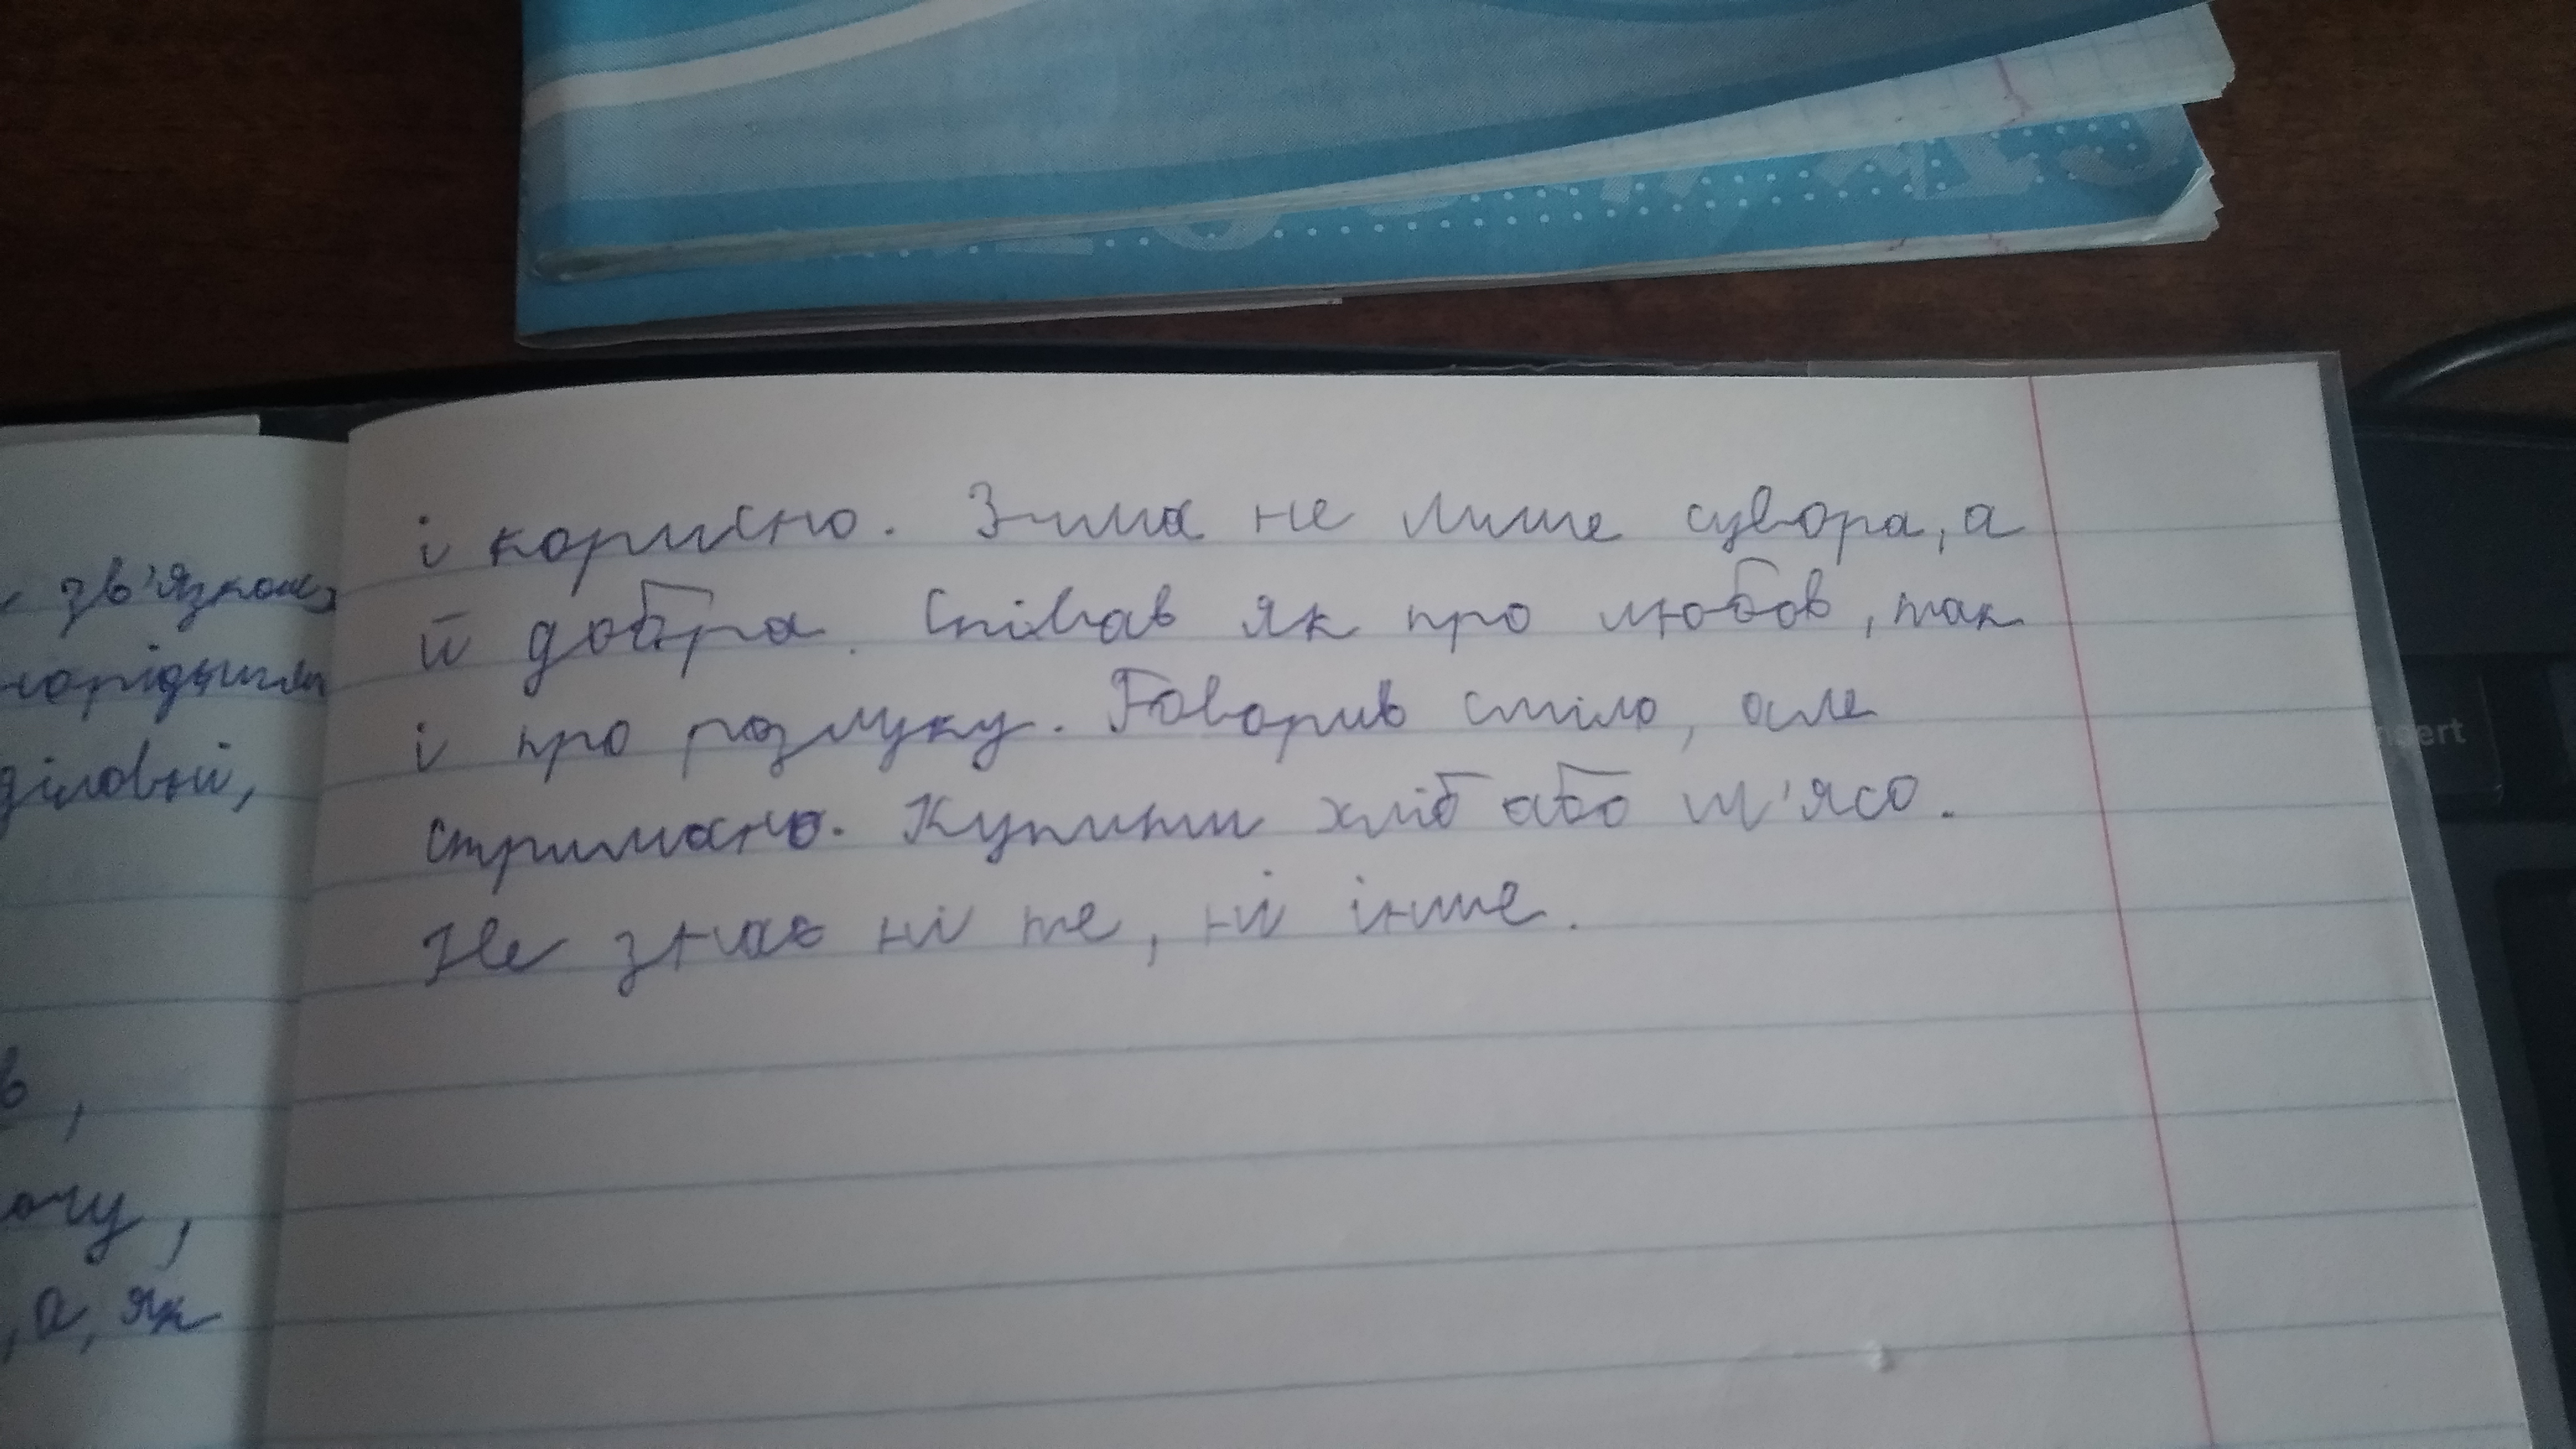 зв'язком
норідними
діловий,
в,
очу,
, а, як
і корисно. Зима не лише сувора, а
й добра. Співав як про любов, так
і про розлуку. Говорив сміло, але
стримано. Купити хліб або м'ясо.
Не знає ні те, ні інше.